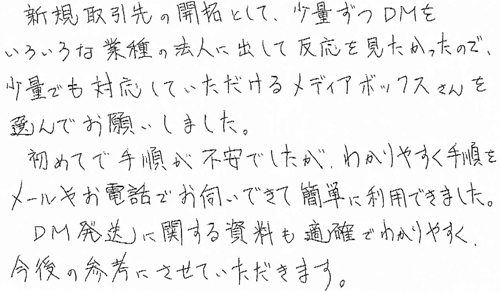 新規取引先の開拓として、少量ずつDMを
いろいろな業種の法人に出して反応を見たかったので、
少量でも対応していただけるメディアボックスさんを
選んでお願いしました。
初めてで手順が不安でしたが、わかりやすく手順を
メールやお電話でお伺いできて簡単に利用できました。
DM発送に関する資料も適確でわかりやすく、
今後の参考にさせていただきます。